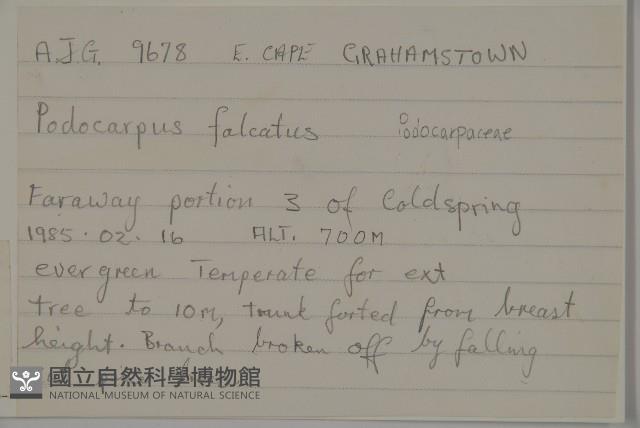 A.J.G. 9678 E. CAPE GRAHAMSTOWN
Podocarpus falcatus Podocarpaceae
Faraway portion 3 of Coldspring
1985.02.16 ALT. 700M
evergreen Temperate for ext
tree to 10M, trunk forted from breast
height. Branch broken off by falling
國立自然科學博物館
NATIONAL MUSEUM OF NATURAL SCIENCE